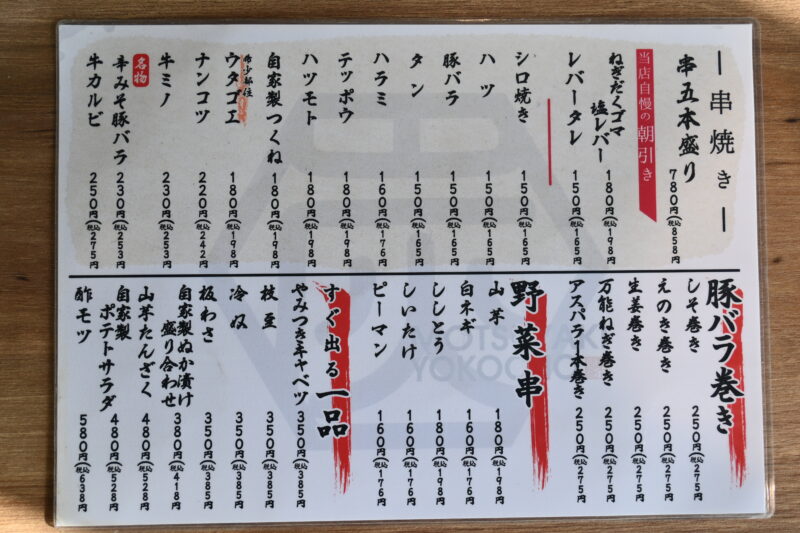 串焼き
串五本盛り 780円(税込858円)
当店自慢の朝引き
ねぎだくゴマ塩レバー 180円(税込198円)
レバータレ 150円(税込165円)
シロ焼き 150円(税込165円)
ハツ 150円(税込165円)
豚バラ 150円(税込165円)
タン 150円(税込165円)
ハラミ 160円(税込176円)
テッポウ 180円(税込198円)
ハツモト 180円(税込198円)
自家製つくね 180円(税込198円)
希少部位
ウタゴエ 180円(税込198円)
ナンコツ 220円(税込242円)
牛ミノ 230円(税込253円)
名物
辛みそ豚バラ 230円(税込253円)
牛カルビ 250円(税込275円)
豚バラ巻き
しそ巻き 250円(税込275円)
えのき巻き 250円(税込275円)
生姜巻き 250円(税込275円)
万能ねぎ巻き 250円(税込275円)
アスパラ1本巻き 250円(税込275円)
野菜串
山芋 180円(税込198円)
白ネギ 160円(税込176円)
ししとう 180円(税込198円)
しいたけ 160円(税込176円)
ピーマン 160円(税込176円)
すぐ出る一品
やみつきキャベツ 350円(税込385円)
枝豆 350円(税込385円)
冷奴 350円(税込385円)
板わさ 350円(税込385円)
自家製ぬか漬け盛り合わせ 380円(税込418円)
山芋たんざく 480円(税込528円)
自家製ポテトサラダ 480円(税込528円)
酢モツ 580円(税込638円)
YOKOCHO